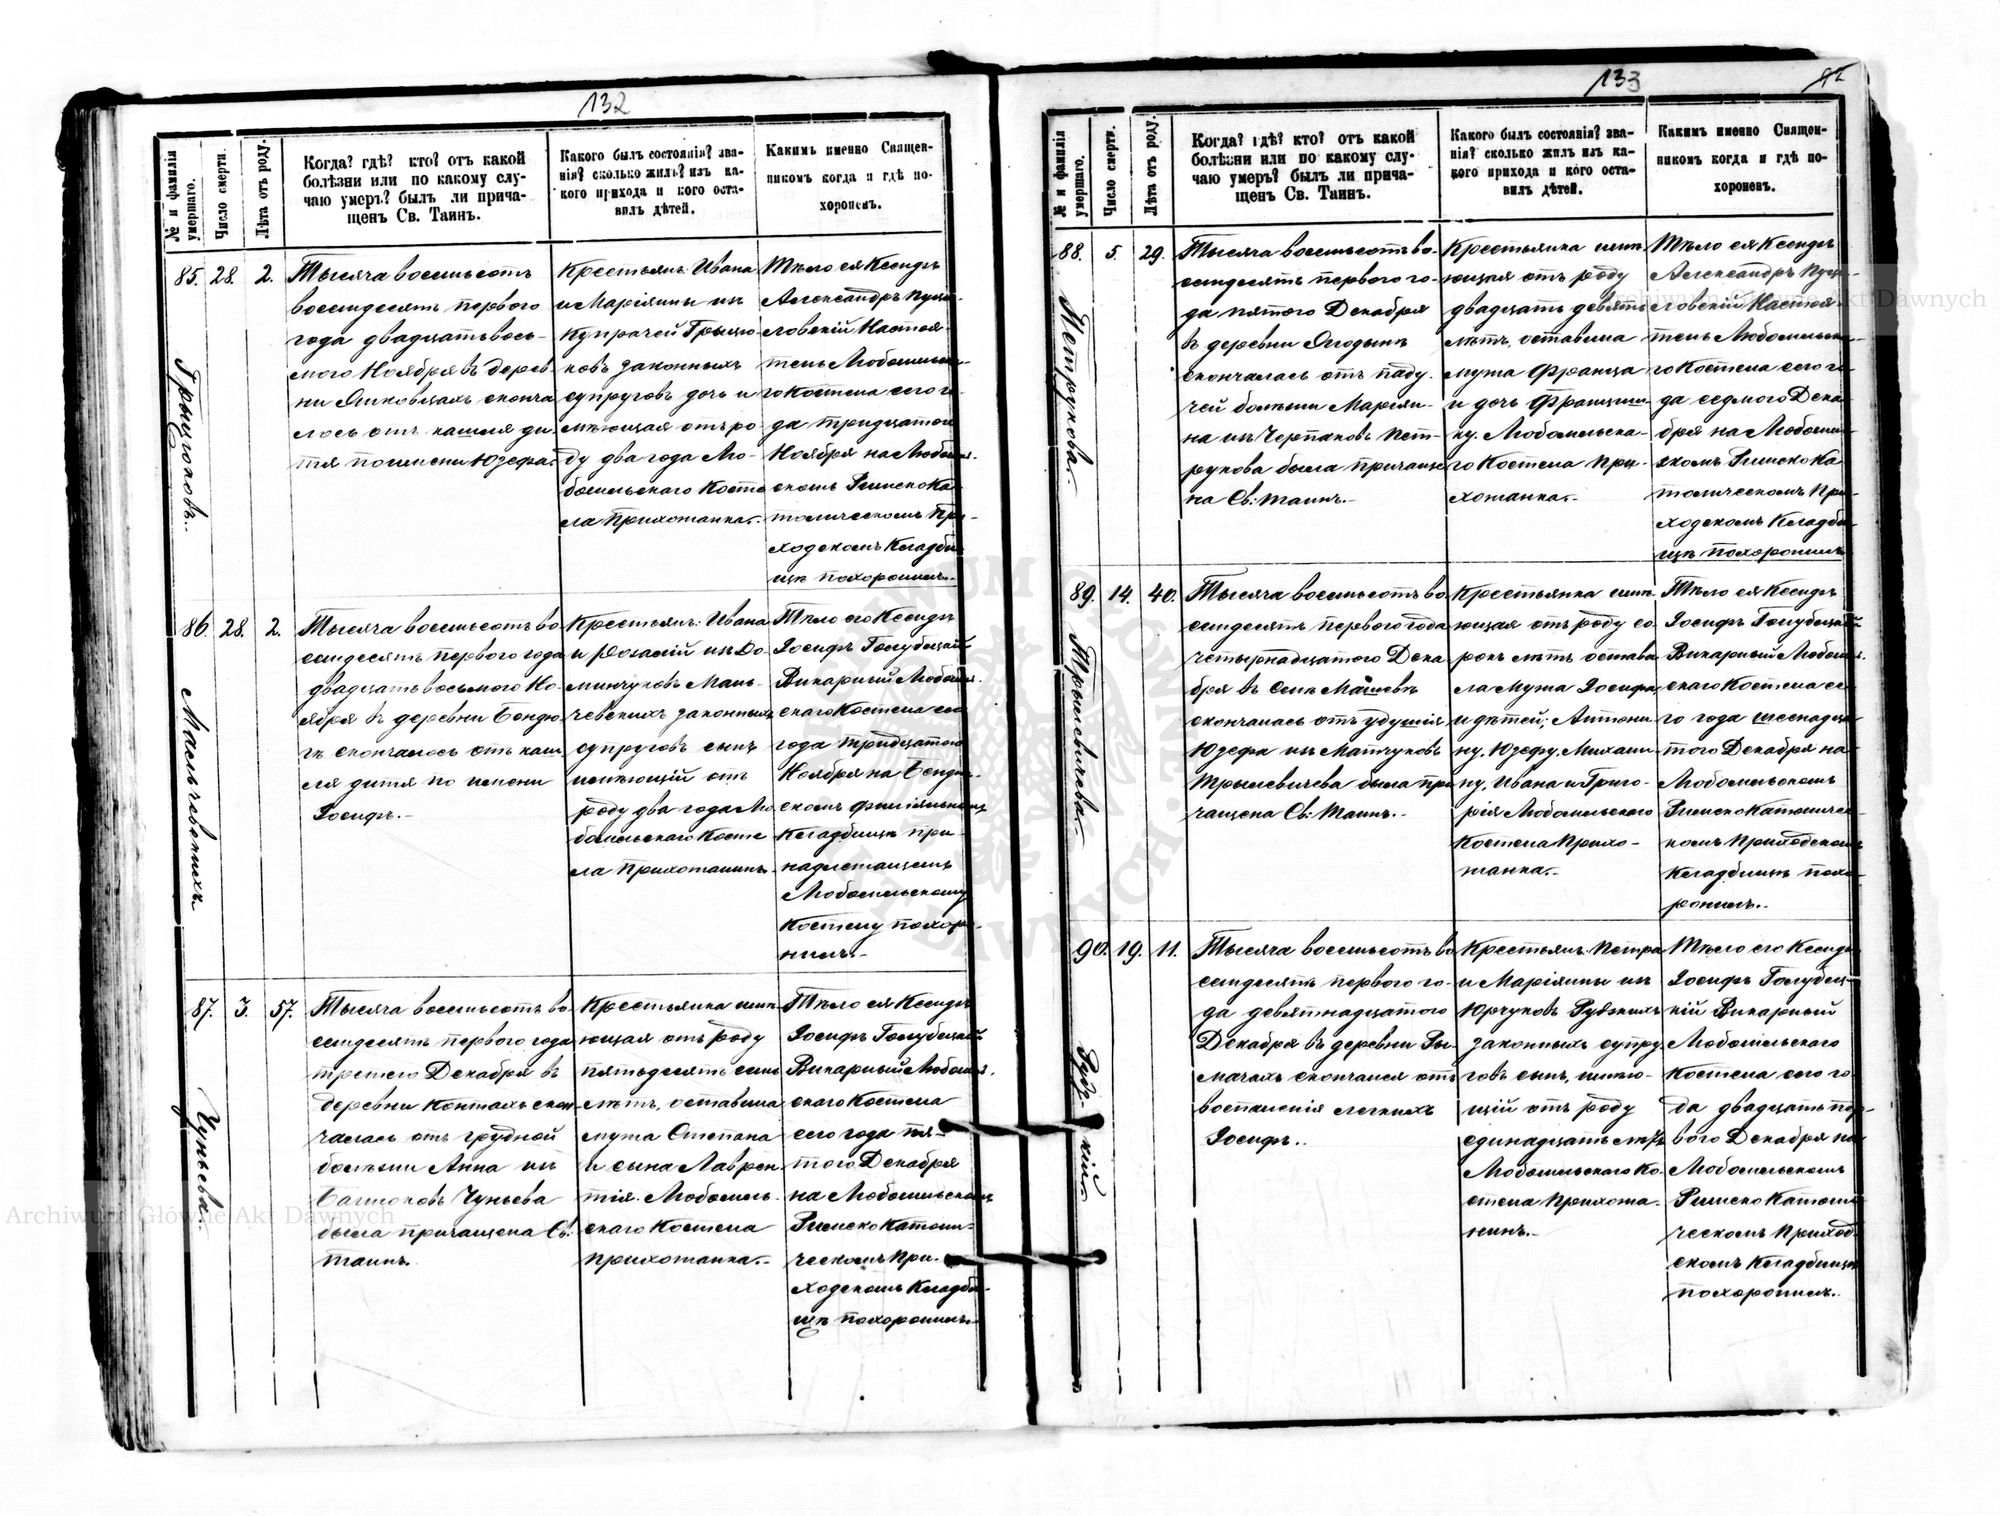 132
№ и фамилія умершаго.
Число смерти.
Лѣта отъ роду.
Когда? гдѣ? кто? отъ какой
болѣзни или по какому слу-
чаю умеръ? былъ ли прича-
щенъ Св. Таинъ.
Какого былъ состоянія? зва-
нія? сколько жилъ? изъ ка-
кого прихода и кого оста-
вилъ дѣтей.
Какимъ именно Священ-
никомъ когда и гдѣ по-
хороненъ.
85.
Грыцюковъ.
28.
2.
Тысяча восемьсотъ
восемдесятъ первого
года двадцатьвось-
мого Ноября въ дерев
ни Яшковцахъ сконча
лось отъ кашля ди-
тя по имени Юзефа.
Крестьянъ Ивана
и Маріянны изъ
Купрачей Грыцю
ковъ законныхъ
супруговъ дочь и
мѣющая отъ ро
ду два года Лю-
бомльскаго Косте
ла Прихожанка.-
Тѣло ея Ксендзъ
Александръ
ловскій Настоя-
тель Любомльска-
го Костела сего го-
да тридцатого
Ноября на Любомл-
скомъ Римско Ка
толическомъ При-
ходскомъ Кладби
щѣ похоронилъ.-
86.
Масльчевскихъ.
28.
2.
Тысяча восемьсотъ во
семдесятъ первого года
двадцатьвосьмого Но-
ября въ деревни Бендю
гѣ скончалось отъ каш
ля дитя по имени
Іосифъ.-
Крестьянъ: Ивана
и Розалій изъ До-
минчуковъ Маль-
чевскихъ законныхъ
супруговъ сынъ
имѣющій отъ
роду два года Лю
бомльскаго Косте
ла Прихожанинъ.
Тѣло его Ксендзъ
Іосифъ Голубецкій
Викарный Любомл-
скаго Костела сего
года тридцатого
Ноября на Бендю-
скомъ Филіяльномъ
Кладбищѣ при-
надлежащемъ
Любомльскому
Костелу похоро-
нилъ.-
87.
Чуньева.
3.
57.
Тысяча восемьсотъ во-
семдесятъ первого года
третего Декабря въ
деревни Контахъ скон-
чалась отъ грудной
болѣзни Анна изъ
Чуньева
была причащена Св:
таинъ.
Крестьянка имѣ-
ющая отъ роду
пятьдесятъ семь
лѣтъ, оставила
мужа Степана
и сына Лаврен-
тія. Любомль-
скаго Костела
прихожанка.-
Тѣло ея Ксендзъ
Іосифъ Голубецкій
Викарный Любомл.
скаго Костела
сего года пя-
того Декабря
на Любомльскомъ
Римско Католи-
ческомъ При-
ходскомъ Кладби-
щѣ похоронилъ.-
133
№ и фамилія умершаго.
Число смерти.
Лѣта отъ роду.
Когда? гдѣ? кто? отъ какой
болѣзни или по какому слу-
чаю умеръ? былъ ли прича-
щенъ Св. Таинъ.
Какого былъ состоянія? зва-
нія? сколько жилъ изъ ка-
кого прихода и кого оста-
вилъ дѣтей.
Какимъ именно Священ-
никомъ когда и гдѣ по-
хороненъ.
88.
Петрукова.
5.
29.
Тысяча восемьсотъ во-
семдесятъ первого го-
да пятого Декабря
въ деревни Ягодынѣ
скончалась отъ паду-
чей болѣзни Маріян-
на изъ Черпаковъ Пет-
рукова была причаще
на Св: таинъ.-
Крестьянка имѣ
ющая отъ роду
двадцать девять
лѣтъ, оставила
мужа Франца
и дочь Францеш-
ку. Любомльска-
го Костела При-
хожанка.-
Тѣло ея Ксендзъ
Александръ
ловскій Настоя-
тель Любомльска-
го Костела сего го-
да седмого Дека
бря на Любомль-
скомъ Римско Ка
толическомъ При-
ходскомъ Кладби-
щѣ похоронилъ
89.
Трылевичева.
14.
40.
Тысяча восемьсотъ во
семдесятъ первого года
четырнадцатого Дека
бря въ селѣ Машовѣ
скончалась отъ удушія
Юзефа изъ Матчуковъ
Трылевичева была при
чащена Св: Таинъ.-
Крестьянка имѣ
ющая отъ роду со
рокъ лѣтъ остави
ла мужа Іосифа
и дѣтей; Антони
ну, Юзефу, Михали-
ну, Ивана и Григо-
рія Любомльского
Костела Прихо-
жанка.-
Тѣло ея Ксендзъ
Іосифъ Голубецкій
Викарный Любомл.
скаго Костела се-
го года шеснадца-
того Декабря на
Любомльскомъ
Римско Католичес-
комъ Приходскомъ
Кладбищѣ похо-
ронилъ.-
90.
Рудзкій.
19.
11.
Тысяча восемьсотъ во
семдесятъ первого го-
да девятнадцатого
Декабря въ деревни Ры-
мачахъ скончался отъ
воспаленія легкихъ
Іосифъ.-
Крестьянъ: Петра
и Маріянны изъ
Юрчуковъ Рудзкихъ
законныхъ супру-
говъ сынъ, имѣю-
щій отъ роду
единадцать лѣтъ
Любомльскаго Ко-
стела Прихожа-
нинъ.-
Тѣло его Ксендзъ
Іосифъ Голубец-
кій Викарный
Любомльскаго
Костела сего го-
да двадцать пер-
вого Декабря на
Любомльскомъ
Римско Католи-
ческомъ Приход-
скомъ Кладбищѣ
похоронилъ.-
Archiwum Główne Akt Dawnych
Archiwum Główne Akt Dawnych